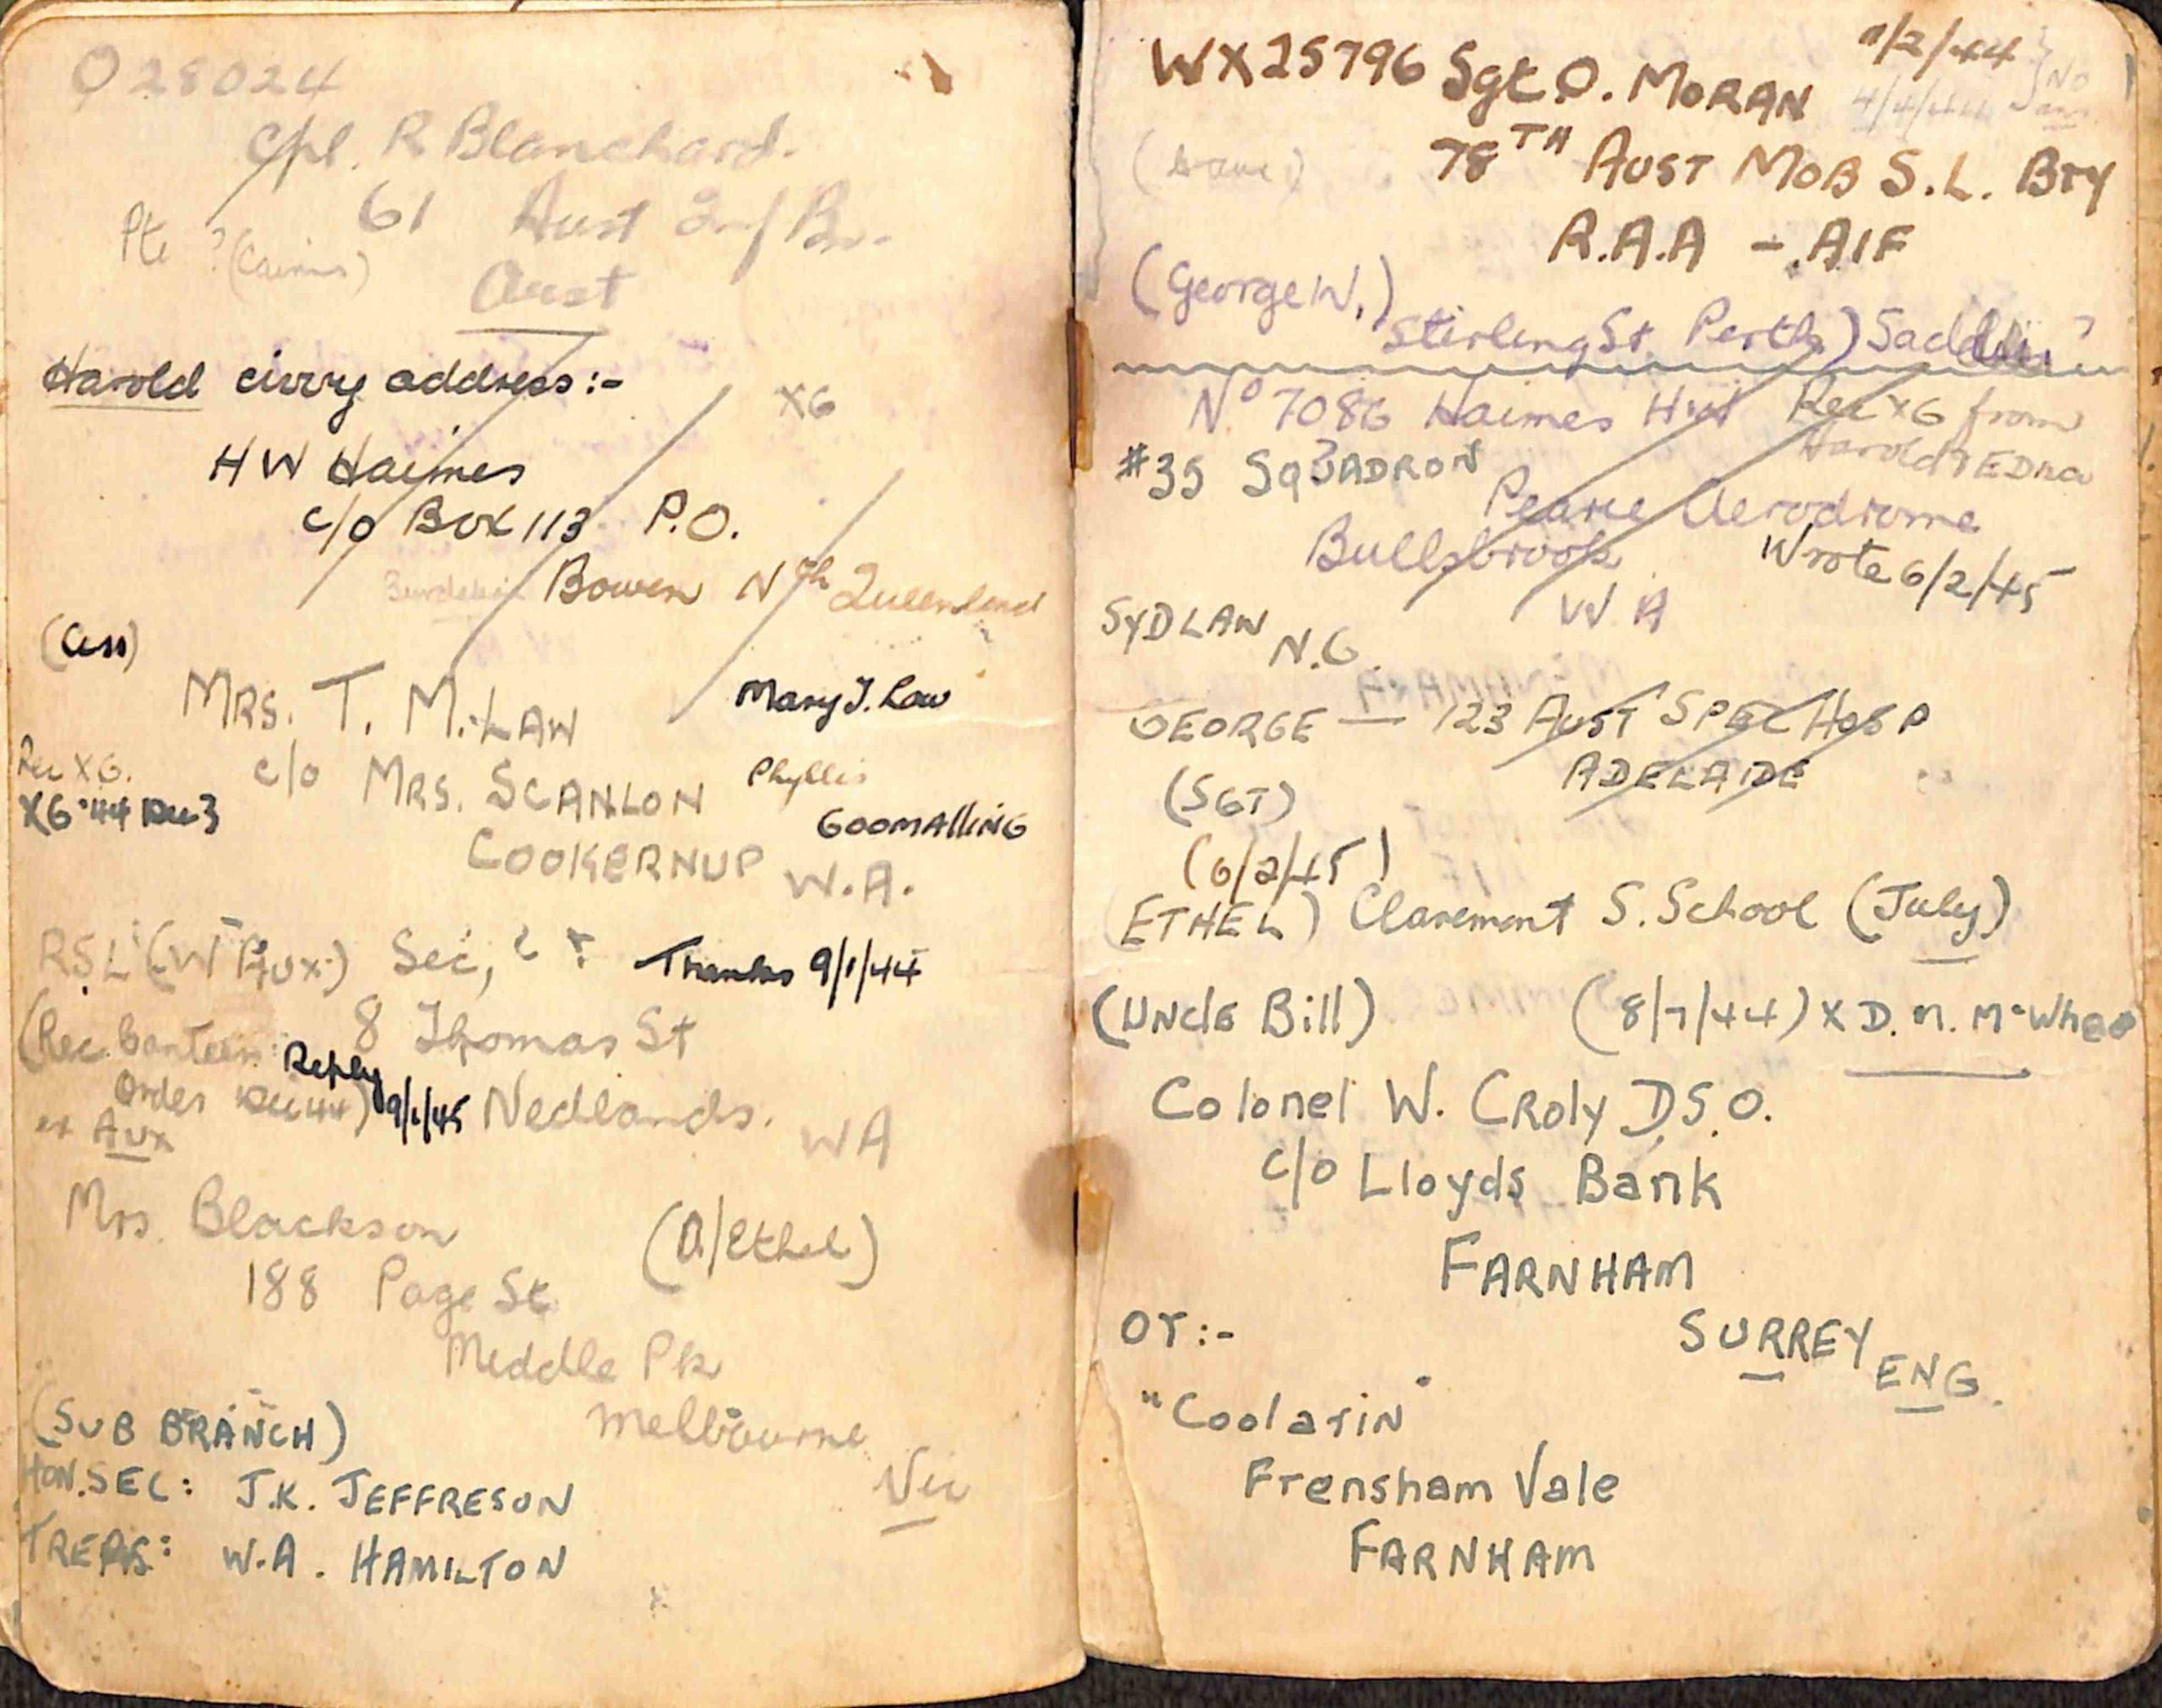 Q28024
Cpl. R Blanchard.
61 Aust Inf Bn.
Pte ? (Cairns)
Aust
Harold civvy address:-
X6
H W Haimes
c/o Box 113 P.O.
Bowen Nth Queensland
(Cess)
MRS. T. M. LAW
Mary J. Law
Rec X6.
c/o MRS. SCANLON
Phyllis
X6 '44 Dec 3
GOOMAllING
COOKERNUP W.A.
RSL (W Aux) Sec, ? ?
Thanks 9/1/44
(Rec. Canteen
8 Thomas St
Reply
Order Dec 44) 9/1/45
Nedlands. WA
Aux
Mrs. Blackson
(A/Ethel)
188 Page St
Middle Pk
Melbourne
Vic
(SUB BRANCH)
HON. SEC: J.K. JEFFRESON
TREAS: W.A. HAMILTON
WX25796 Sgt D. MORAN
/2/44
No
4/4/44
78TH AUST MOB S.L. BTY
R.A.A - AIF
(George W.)
Stirling St Perth)
No 7086 Haimes HW
Rec X6 from
Harold & EDna
#35 SQUADRON
Pearce Aerodrome
Bullsbrook
Wrote 6/2/45
W A
SYD LAW N.G.
GEORGE — 123 AUST SPEC HOSP
ADELAIDE
(SGT)
(6/2/45)
ETHEL) Claremont S. School (July)
(UNclE Bill)
(8/7/44) X D. M.
Colonel W. CRoly D.S.O.
c/o Lloyds Bank
FARNHAM
SURREY ENG.
or:-
"Coolarin"
Frensham Vale
FARNHAM